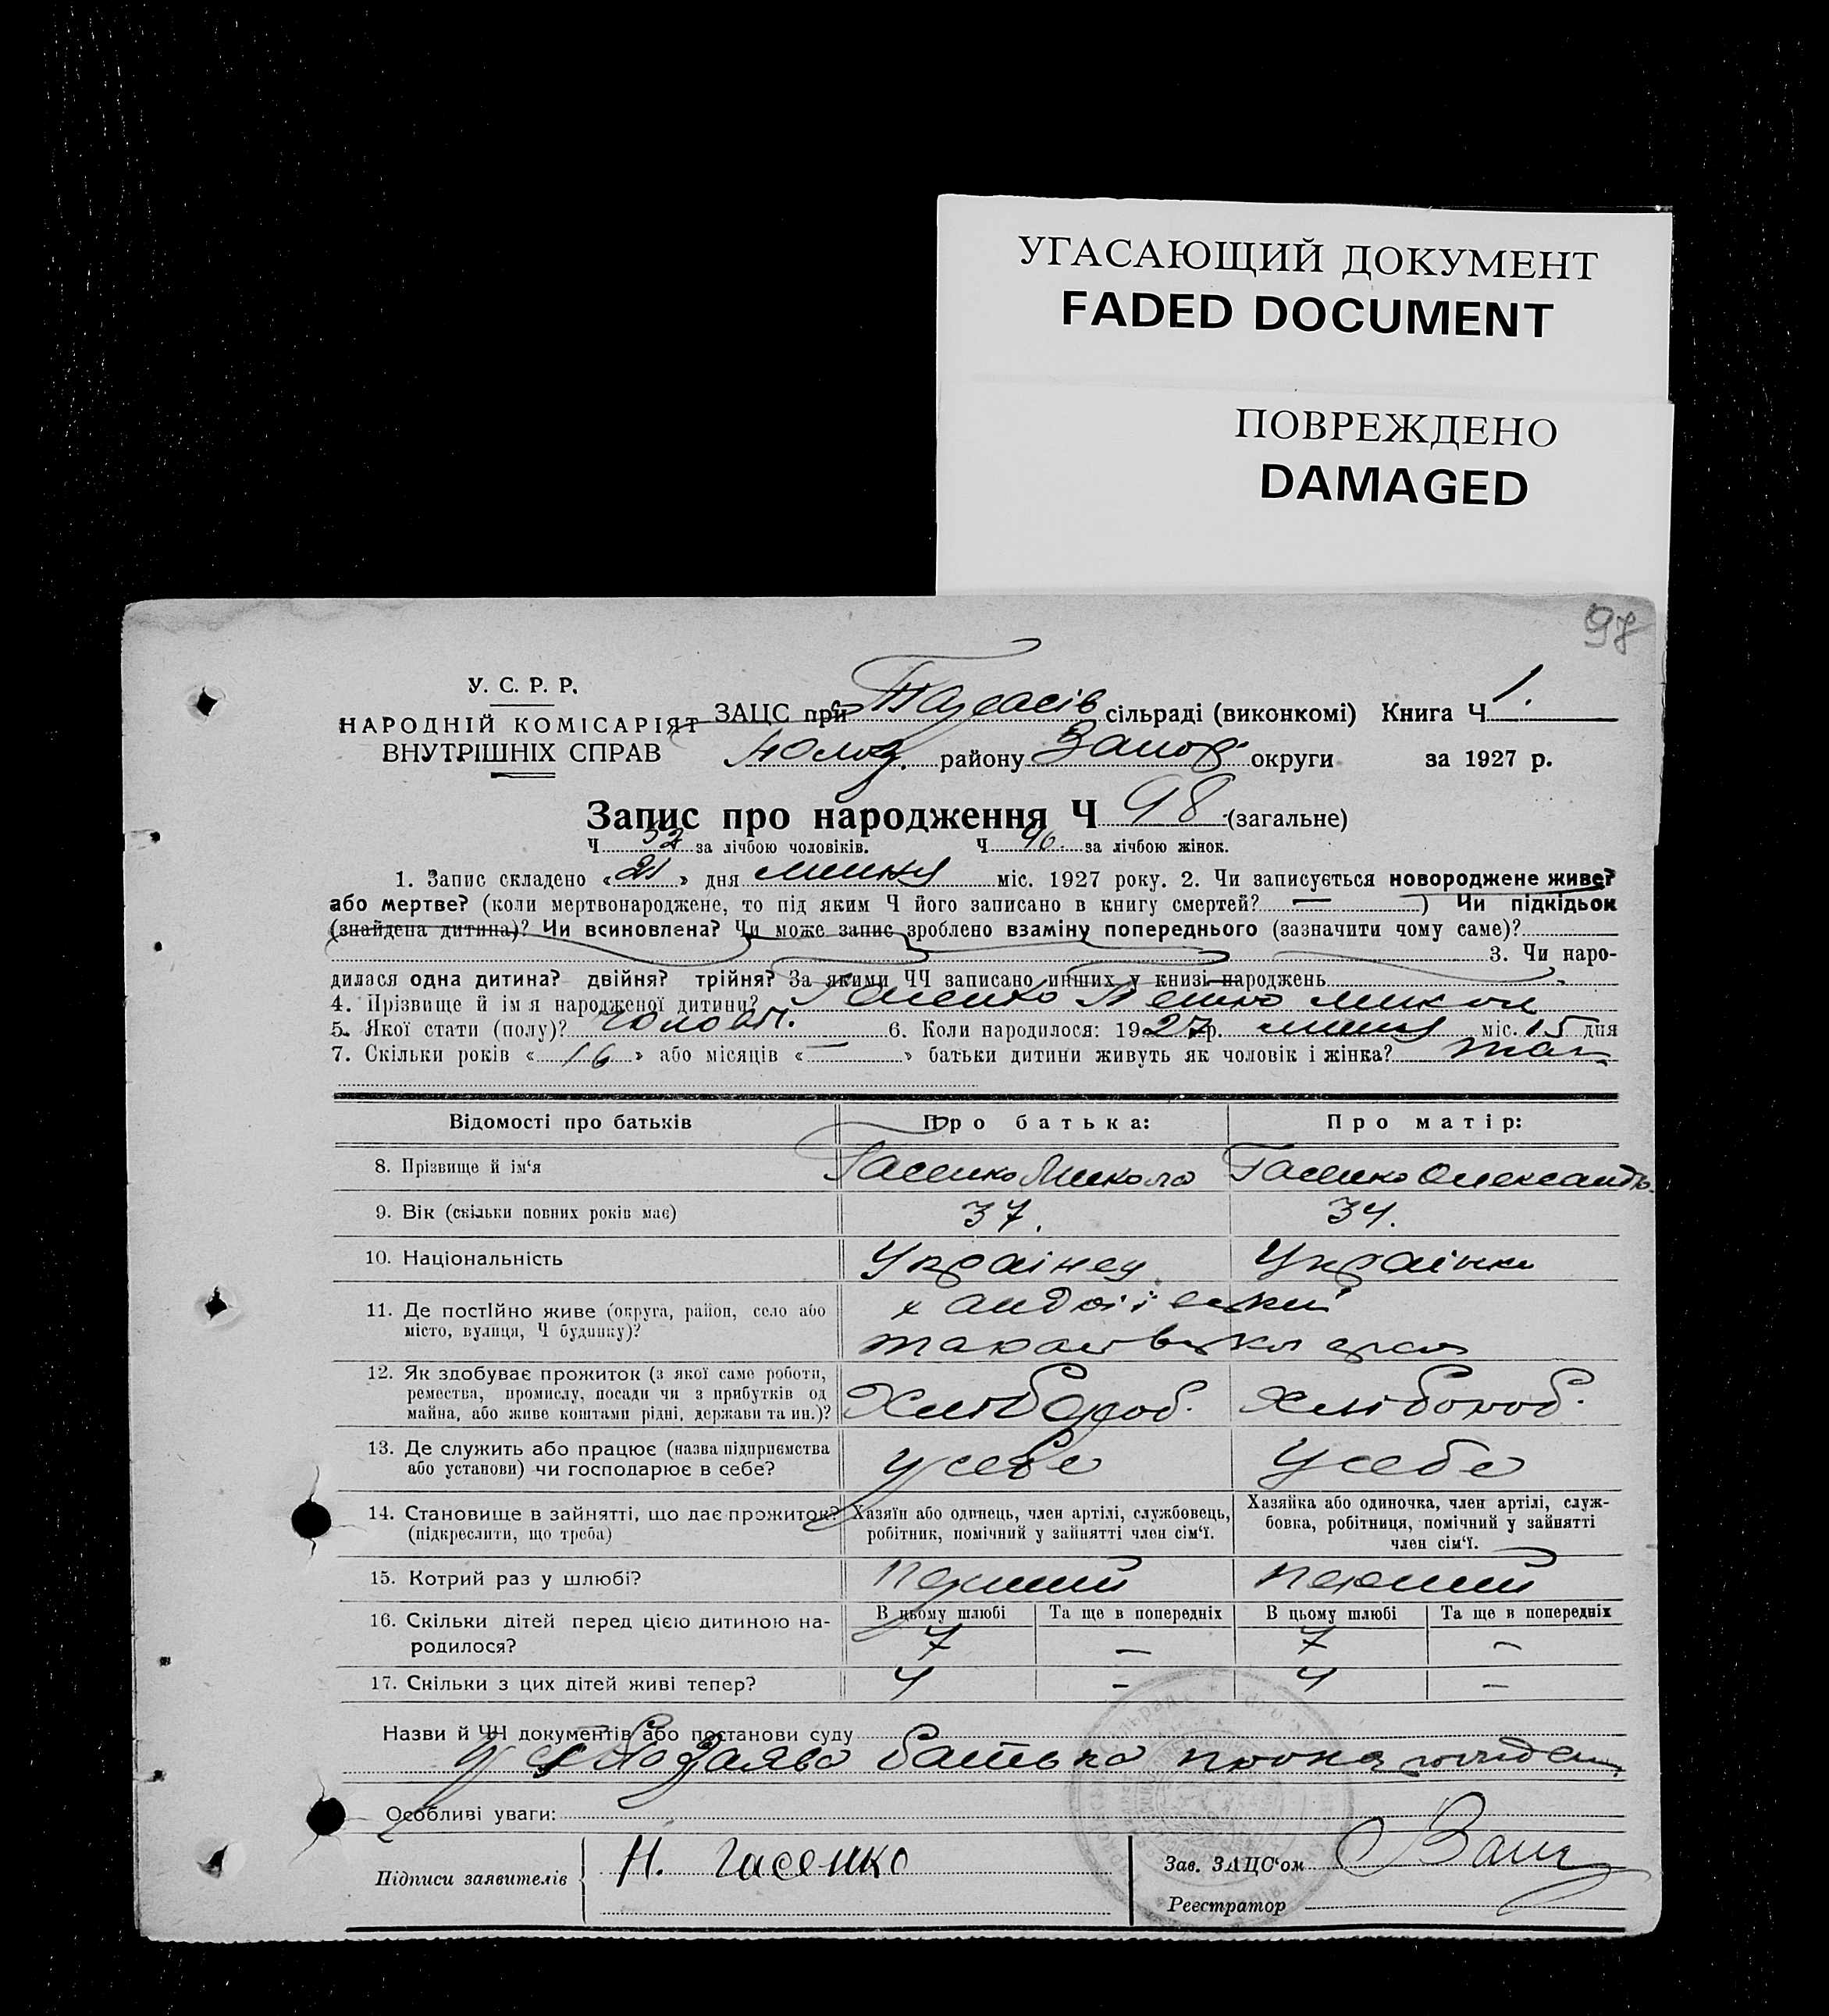 УГАСАЮЩИЙ ДОКУМЕНТ
FADED DOCUMENT
ПОВРЕЖДЕНО
DAMAGED
97
У. С. Р. Р.
НАРОДНІЙ КОМІСАРІЯТ
ВНУТРІШНІХ СПРАВ
ЗАЦС при Тарасів сільраді (виконкомі) Книга Ч 1.
району Запор. округи за 1927 р.
Запис про народження Ч 98 (загальне)
Ч 52 за лічбою чоловіків. Ч 46 за лічбою жінок.
1. Запис складено « 21 » дня липня міс. 1927 року. 2. Чи записується новороджене живе?
або мертве? (коли мертвонароджене, то під яким Ч його записано в книгу смертей? — ) Чи підкідьок
(знайдена дитина)? Чи всиновлена? Чи може запис зроблено взаміну попереднього (зазначити чому саме)?
3. Чи наро-
дилася одна дитина? двійня? трійня? За якими ЧЧ записано инших у книзі народжень
4. Прізвище й ім я народженої дитини? Гасенко
5. Якої стати (полу)? чоловіч. 6. Коли народилося: 1927 р. липня міс. 15 дня
7. Скільки років « 16 » або місяців « — » батьки дитини живуть як чоловік і жінка? так
Відомості про батьків Про батька: Про матір:
8. Прізвище й ім‘я Гасенко Микола Гасенко Олександр.
9. Вік (скільки повних років має) 37. 34.
10. Національність Українец Українка
11. Де постійно живе (округа, район, село або
місто, вулиця, Ч будинку)?
12. Як здобуває прожиток (з якої саме роботи,
ремества, промислу, посади чи з прибутків од
майна, або живе коштами рідні, держави та ин.)? Хлібороб. Хлібороб.
13. Де служить або працює (назва підприємства
або установи) чи господарює в себе? у себе у себе
14. Становище в зайнятті, що дає прожиток?
(підкреслити, що треба)
Хазяїн або одинець, член артілі, службовець,
робітник, помічний у зайнятті член сім‘ї.
Хазяйка або одиночка, член артілі, служ-
бовка, робітниця, помічний у зайнятті
член сім‘ї.
15. Котрий раз у шлюбі? перший перший
16. Скільки дітей перед цією дитиною на-
родилося?
В цьому шлюбі Та ще в попередніх В цьому шлюбі Та ще в попередніх
7 — 7 —
17. Скільки з цих дітей живі тепер? 4 — 4 —
Назви й ЧЧ документів або постанови суду
Заява батька
Особливі уваги:
Підписи заявителів Н. Гасенко
Зав. ЗАЦС‘ом
Реєстратор